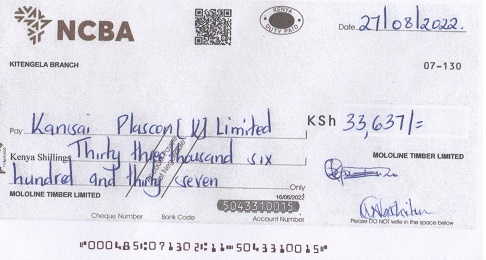 NCBA
KENYA
DUTY PAID
Date 27/08/2022.
KITENGELA BRANCH
07-130
Pay Kansai Plascon [K] Limited
KSh 33,637/=
Kenya Shillings Thirty three thousand six
hundred and thirty seven Only
MOLOLINE TIMBER LIMITED
16/06/2022
MOLOLINE TIMBER LIMITED
5043310015
Cheque Number Bank Code Account Number
Please DO NOT write in the space below
"000485⑆07130 2⑆11⑉5043310015"